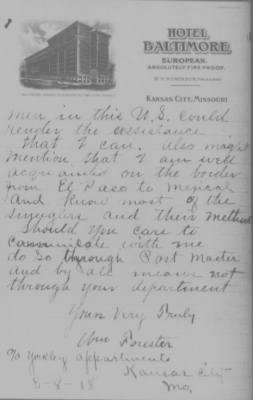 HOTEL
BALTIMORE,
EUROPEAN.
ABSOLUTELY FIRE PROOF.
KANSAS CITY, MISSOURI
men in this U.S. could
render the assistance
that I can. Also might
mention that I am well
acquainted on the border
from El Paso to Mexical
and know most of the
smugglers and their method
Should you care to
communicate with me
do so through Post Master
and by all means not
through your department
Yours Very Truly
Wm Forester
Appartments
Kansas City
5-8-18 Mo.